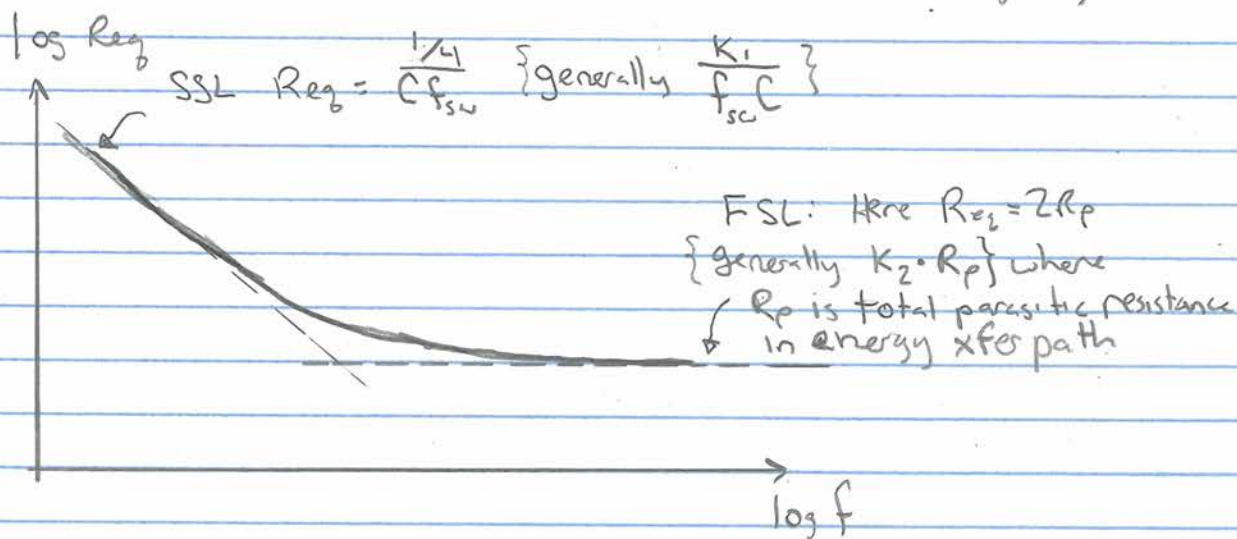 log Req
SSL Req = 1/4 / C fsw {generally K1 / fsw C}
FSL: Here Req = 2Rp
{generally K2 · Rp} where
Rp is total parasitic resistance
in energy xfer path
log f